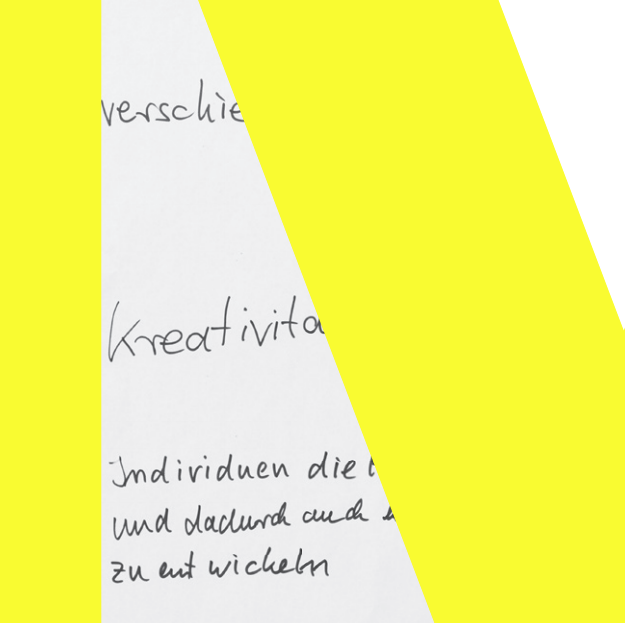 verschie
Kreativitä
Individuen die
und dadurch auch
zu entwickeln